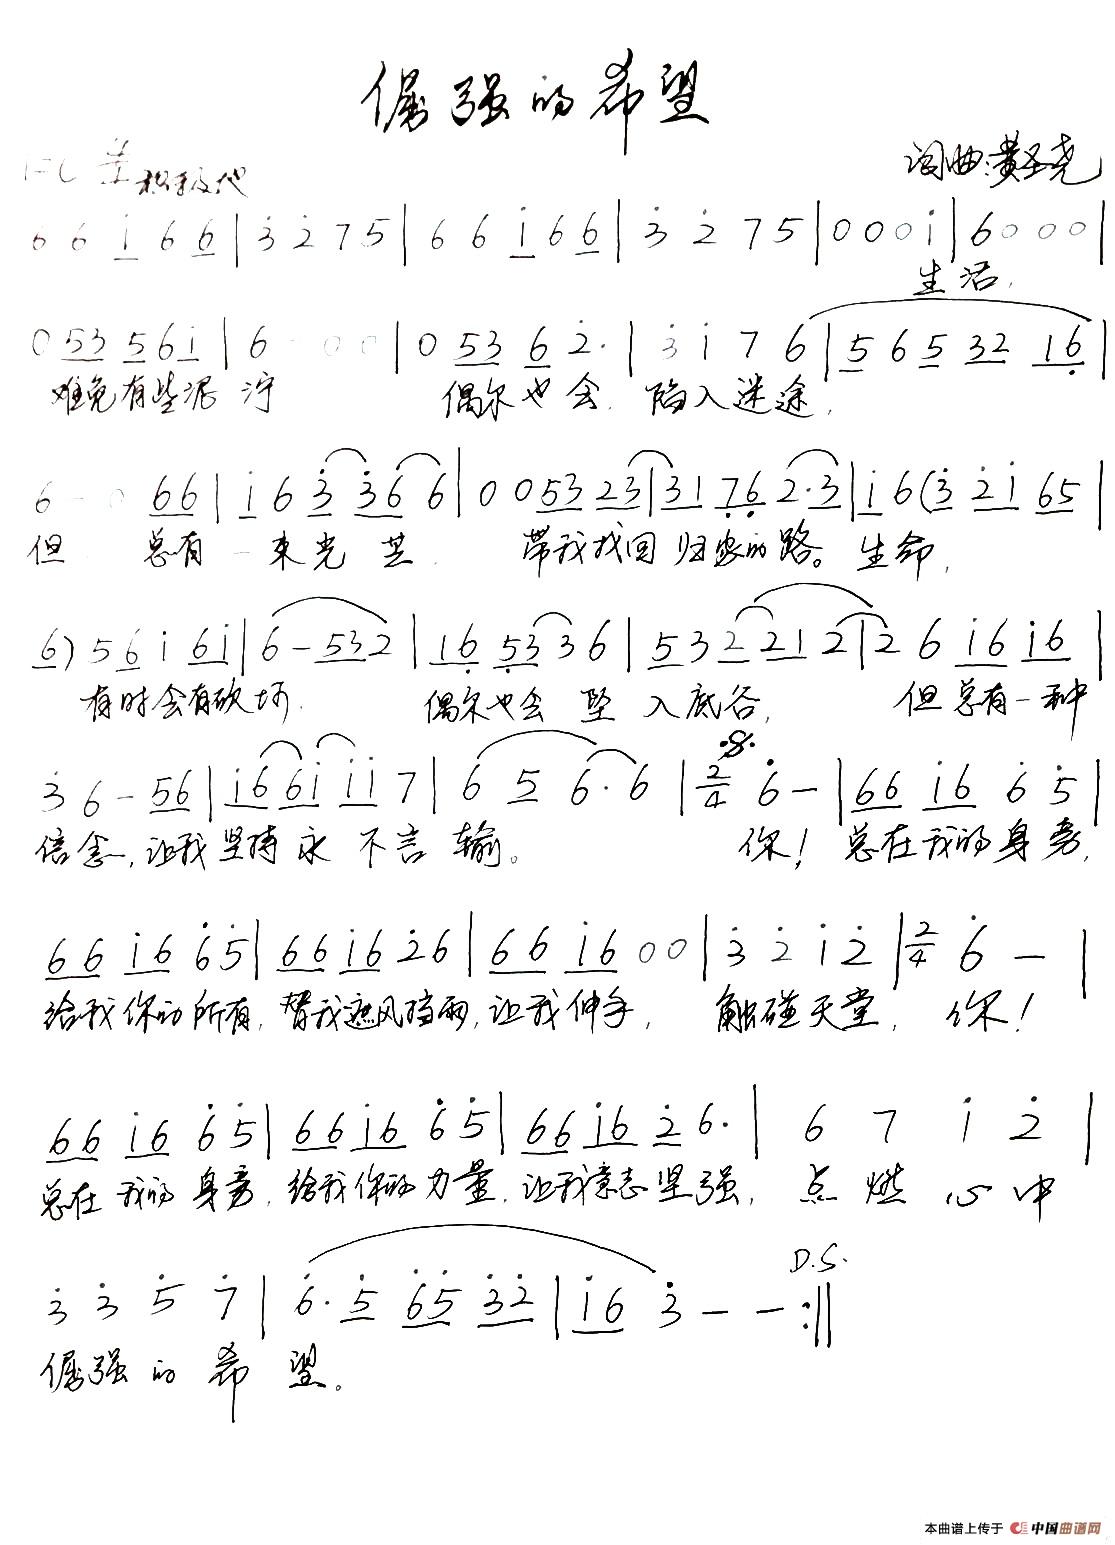 倔强的希望
1=C 积极地
词曲:黄圣尧
6 6 i 6 6 | 3 2 7 5 | 6 6 i 6 6 | 3 2 7 5 | 0 0 0 i | 6 0 0 0 |
生活,
0 53 56i | 6 - 0 0 | 0 53 6 2· | 3 i 7 6 | 5 6 5 32 16 |
难免有些泥泞 偶尔也会 陷入迷途,
6 - 0 66 | i 6 3 36 6 | 0 0 53 23 | 31 76 2·3 | i 6 (3 2i 65 |
但 总有一束光芒 带我找回归家的路。生命,
6) 5 6 i 6i | 6 - 532 | 16 53 3 6 | 5 3 2 21 2 | 2 6 i6 i6 |
有时会有砍坷 偶尔也会坠入底谷, 但总有一种
3 6 - 56 | i6 6i ii 7 | 6 5 6· 6 | 2/4 6 - | 66 i6 6 5 |
信念,让我坚持永不言输。 你!总在我的身旁,
66 i6 65 | 66 i6 26 | 66 i6 00 | 3 2 i 2 | 2/4 6 - |
给我你的所有,替我遮风挡雨,让我伸手, 触碰天堂, 你!
66 i6 65 | 66 i6 65 | 66 i6 2 6· | 6 7 i 2 |
总在我的身旁,给我你的力量,让我意志坚强, 点燃心中
D.S.
3 3 5 7 | 6· 5 65 32 | i6 3 - - :||
倔强的希望。
本曲谱上传于 中国曲谱网